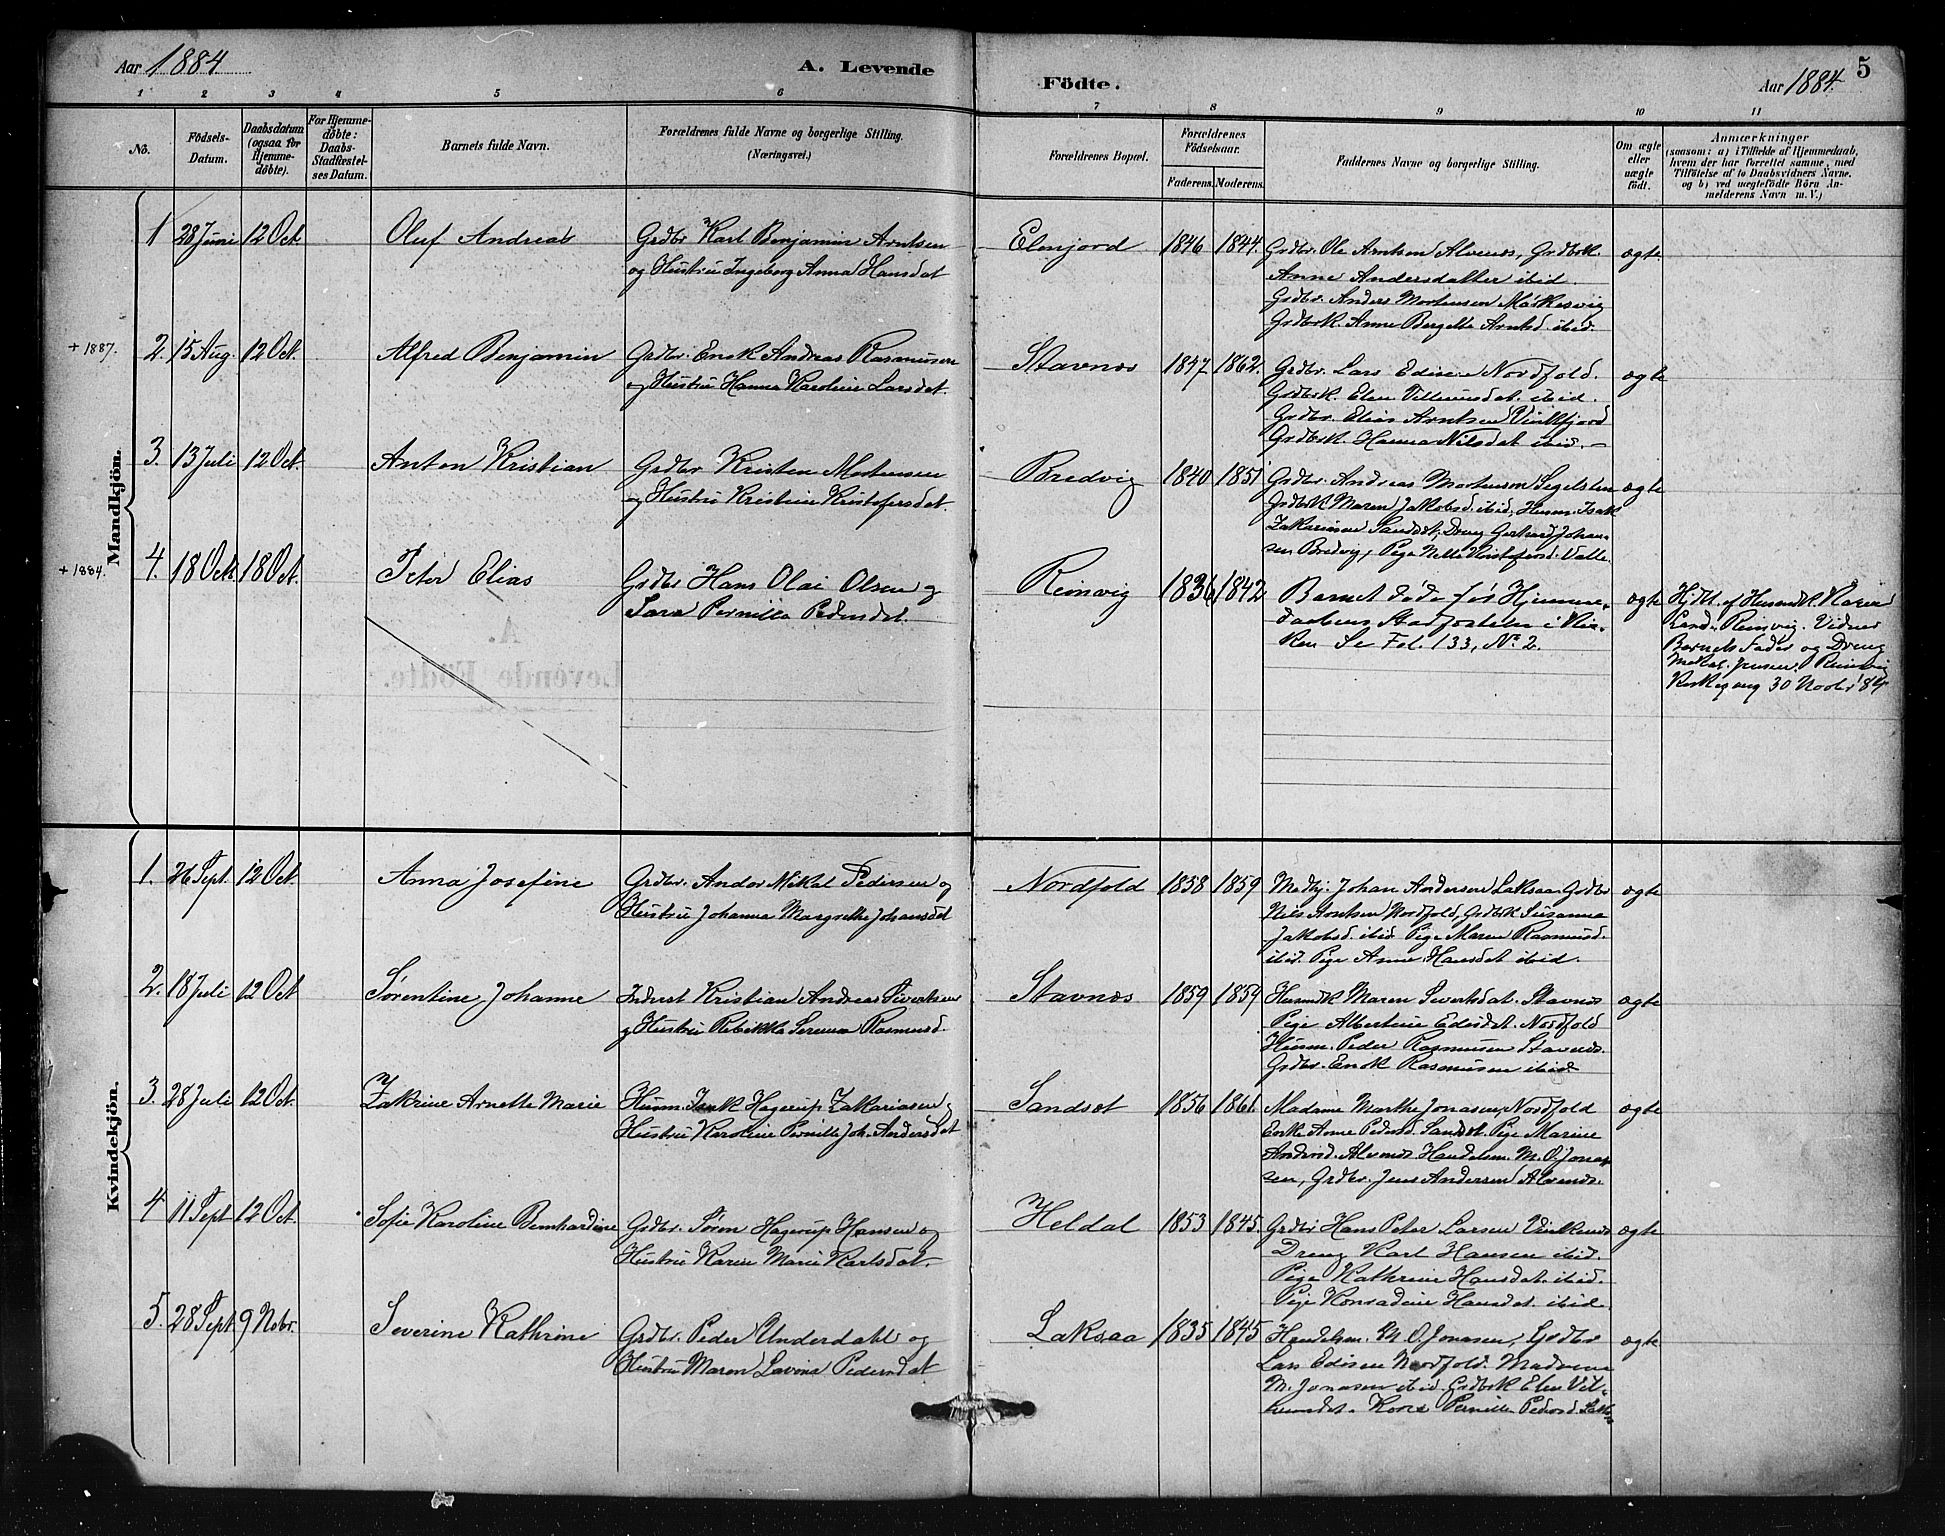 Aar 1884 A. Levende Födte. Aar 1884. 5
1 2 3 4 5 6 7 8 9 10 11
No. Födsels-Datum. Daabsdatum (ogsaa for Hjemmedøbte). For Hjemmedøbte: Daabs-Stadfæstelses Datum. Barnets fulde Navn. Forældrenes fulde Navne og borgerlige Stilling. (Næringsvei.) Forældrenes Bopæl. Forældrenes Födselsaar. Faderens. Moderens. Faddernes Navne og borgerlige Stilling. Om ægte eller uægte födt. Anmærkninger (saasom: a) i Tilfælde af Hjemmedaab, hvem der har forrettet samme, med Tilföielse af to Daabsvidners Navne. og b) ved uægtefödte Börn Anmelderens Navn m.V.)
Mandkjön.
1 28 Juni 12 Oct. Oluf Andreas Grdbr Karl Benjamin Arntsen
og Hustru Ingeborg Anna Hansdat
Elenjord 1846 1844. Grdbr. Ole Arntsen Alvenes, Grdbsk. ægte.
Anne Andersdatter ibid.
Grdbr. Anders Mortensen Mörkesvig
Grdbsk. Anne Bergitte Arntsd. ibid.
+ 1887. 2. 15 Aug. 12 Oct. Alfred Benjamin Grdbr. Enok Andreas Rasmussen
og Hustru Hanna Karoline Larsdat.
Stavnes 1847 1862. Grdbr. Lars Edisen Nordfold. ægte
Grdbsk. Elen Villumsdat. ibid.
Grdbr. Elias Arntsen Vinkfjord
Grdbsk. Hanna Nilsdat ibid. –
3. 13 Juli 12 Oct. Anton Kristian Grdbr Kristen Mortensen
og Hustru Kristine Kristofersdat.
Bredvig 1840 1851 Grdbr. Andreas Mortensen Segelsten ægte
Grdbsk Maren Jakobsd. ibid, Husm. Isak
Zakariasen Sandset, Dreng Gerhard Johan-
sen Bredvig, Pige Nella Kristofersd. Valle
+ 1884. 4. 18 Oct. 18 Oct. Peter Elias Grdbr Hans Olai Olsen og
Sara Pernilla Pedersdat.
Reinvig 1836 1842 Barnet döde för Hjemme- ægte
daabens Stadfæstelse i Kir-
ken Se Fol. 133, No 2.
Hjdbt. af Husmdsk. Karen
Land. Reinvig. Vidner
Barnets Fader og Dreng
Jensen, Reinvig
Kirkegang 30 Novbr 84
Kvindekjön.
1. 26 Sept. 12 Oct. Anna Josefine Grdbr. Andor Mikal Pedersen og
Hustru Johanna Margrethe Johansdat
Nordfold 1858 1859 Madhj. Johan Andersen Laksaa Grdbr ægte
Nils Arntsen Nordfold, Grdbsk Susanna
Jakobsd. ibid Pige Maren Rasmusd.
ibid. Pige Anne Hansdat ibid.
2. 18 Juli 12 Oct Sørentine Johanne Inderst Kristian Andreas Sivertsen
og Hustru Rebikka Serena Rasmusd.
Stavnes 1859 1859 Husmdsk Maren Sivertsdat. Stavnes ægte
Pige Albertine Edisdat. Nordfold
Husm. Peder Rasmussen Stavnes.
Grdbr. Enok Rasmussen ibid
3. 28 Juli 12 Oct. Zakrine Arnette Marie Husm. Isak Hagerup Zakariasen og
Hustru Karoline Pernille Joh. Andersdat
Sandset 1856 1861. Madame Marthe Jonasen Nordfold ægte
Enke Anne Pedersd. Sandset. Pige Marine
Andersd. Alvenes Handelsm. M. O. Jona-
sen, Grdbr. Jens Andersen Alvenes.
4 11 Sept 12 Oct. Sofie Karoline Bernhardine Grdbr. Søren Hagerup Hansen og
Hustru Karen Marie Karlsdat.
Heldal 1853 1845. Grdbr Hans Peter Larsen Vinkenes ægte
Dreng Karl Hansen ibid.
Pige Kathrine Hansdat. ibid.
Pige Konradine Hansdat. ibid
5. 28 Sept. 9 Nobr. Severine Kathrine Grdbr. Peder Underdahl og
Hustru Maren Lavina Pedersdat
Laksaa 1835 1845 Handelsm. M. O. Jonasen, Grdbr ægte
Lars Edisen Nordfold. Madame
M. Jonasen ibid Grdbsk Elen Vil-
lumsdat. Kone Pernille Pedersd.
A.
Levende Födte.